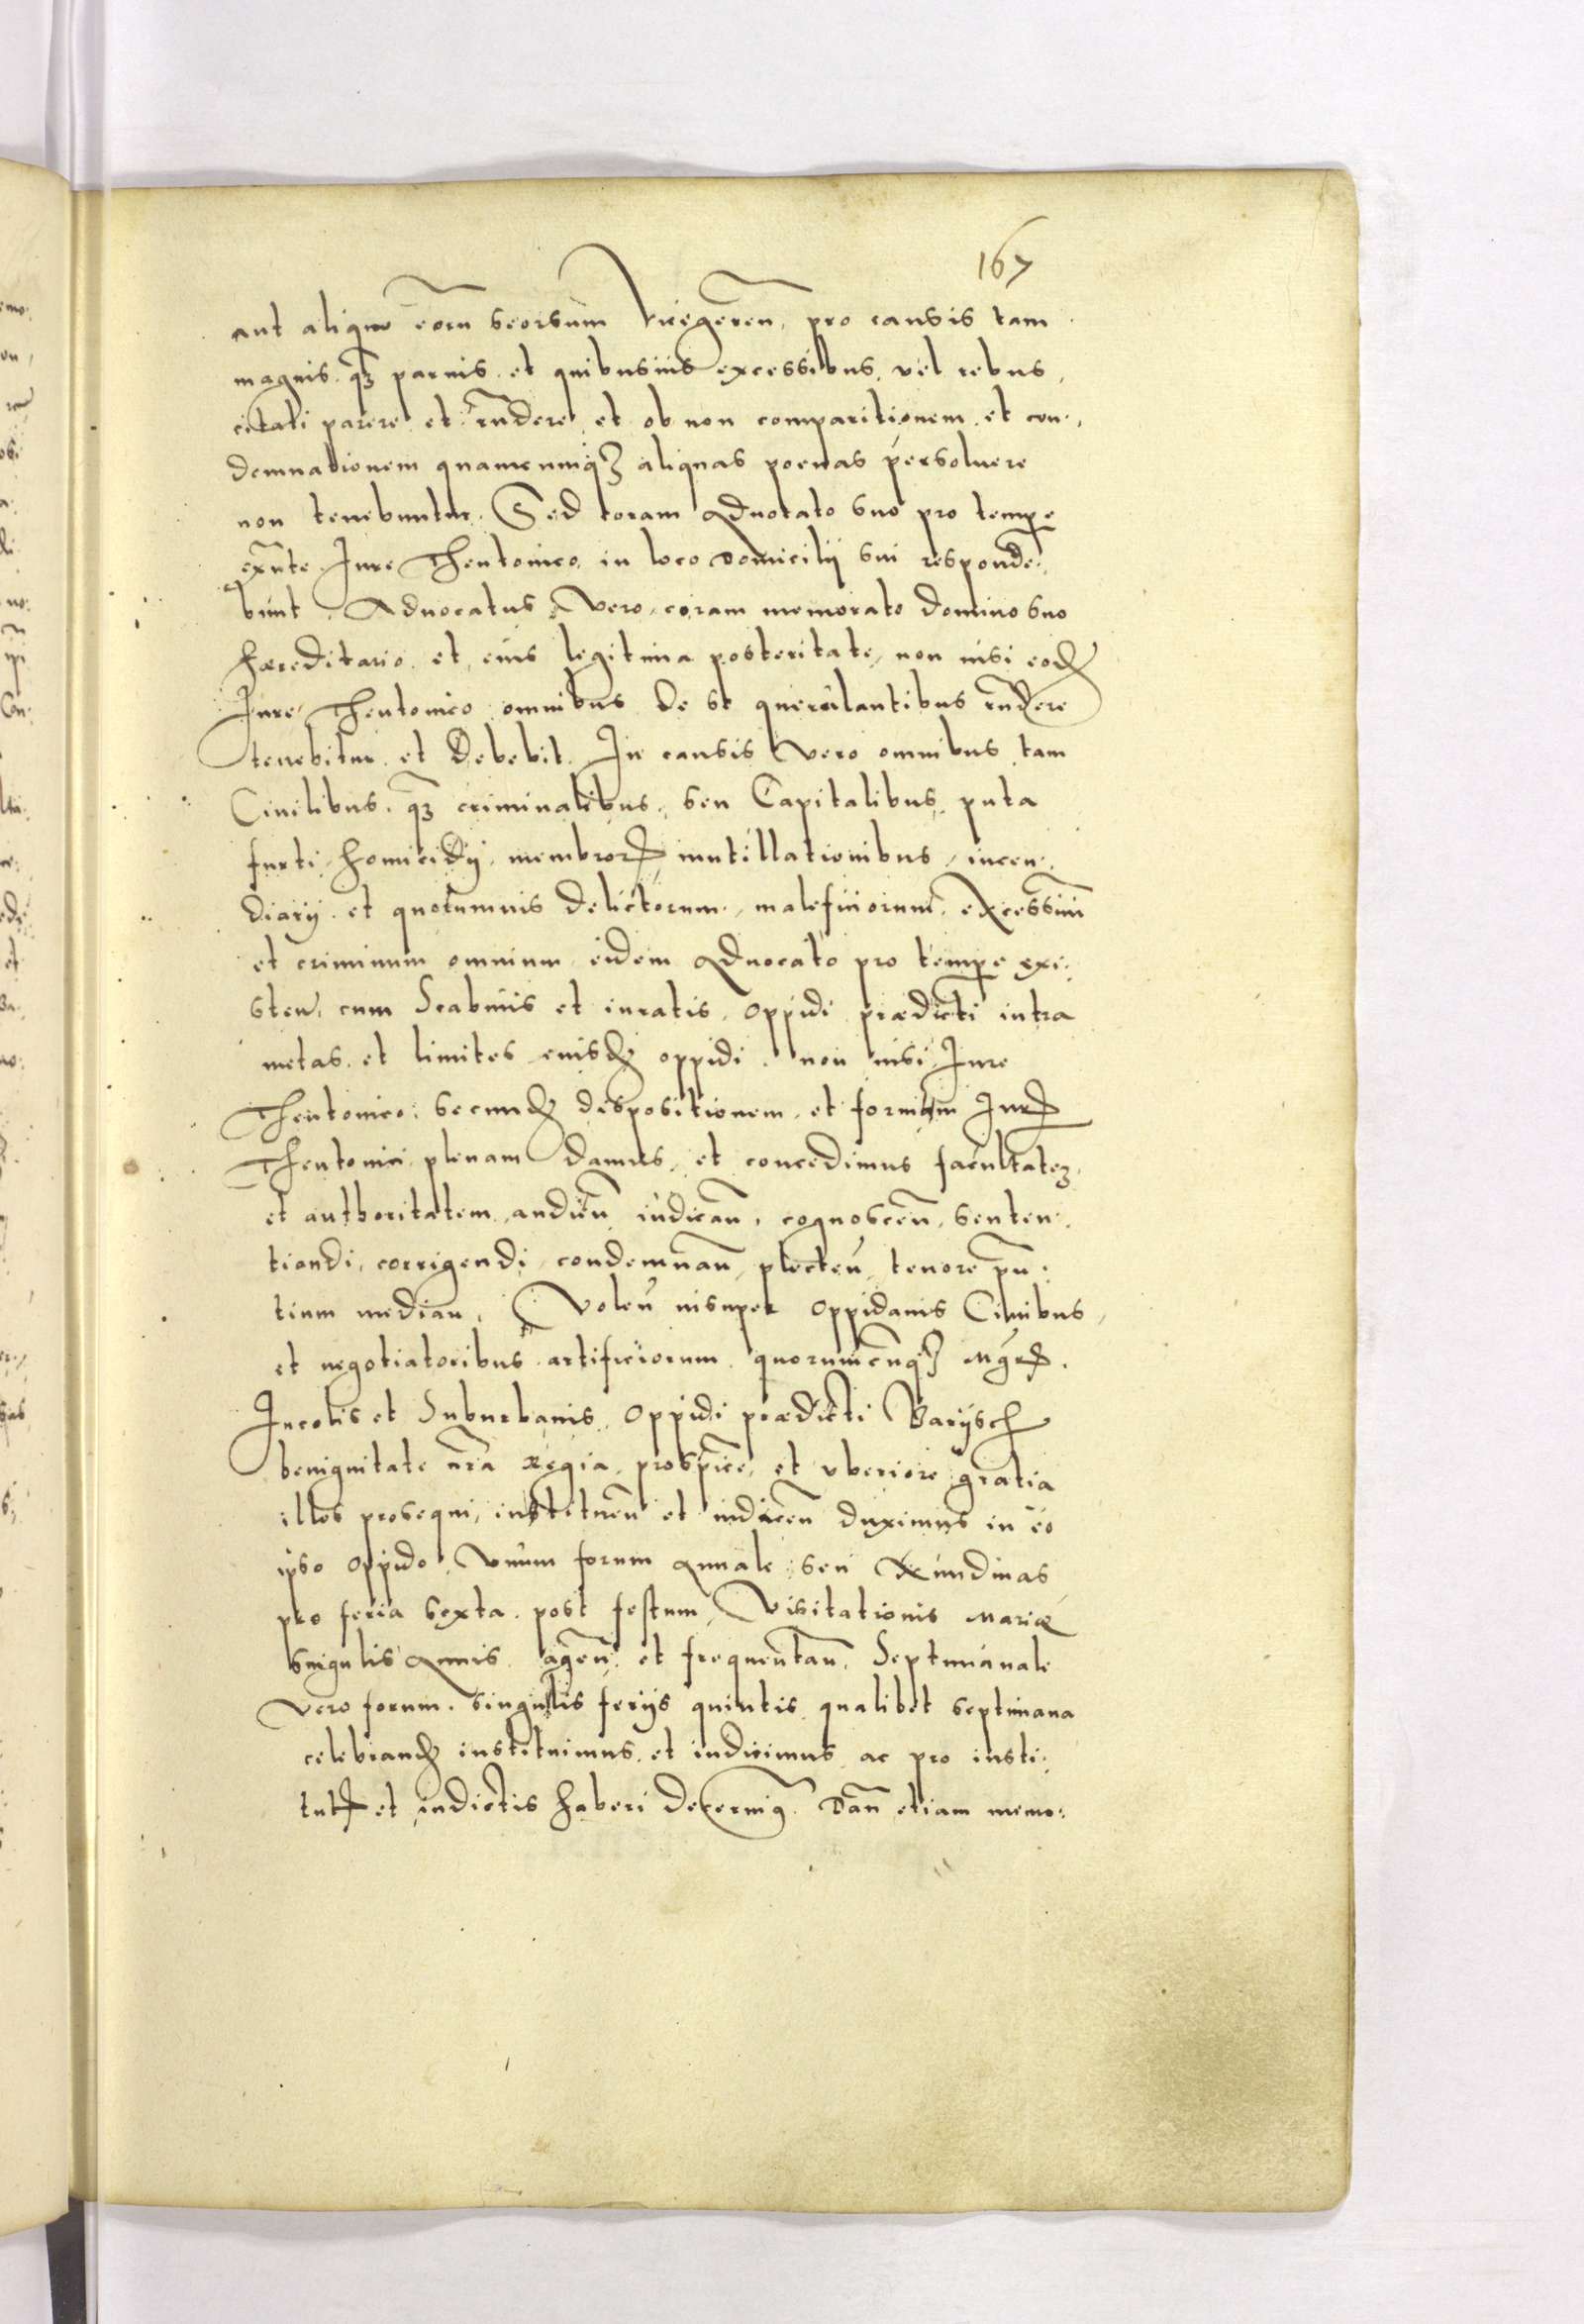 167
aut aliquo eorum seorsum Vicegeren. pro causis tam
magnis. qz paruis. et quibusuis excessibus. vel rebus,
citati parere et rñdere et ob non comparitionem et con:
demnationem quamcunqz aliquas poenas persoluere
non tenebuntur. Sed coram Aduocato suo pro tempe
exñte Jure Theutonico, in loco domicilii sui responde:
bunt. Aduocatus Vero coram memorato domino suo
hæreditario et eius legitima posteritate, non nisi eod
Jure Theutonico omnibus de se querulantibus rñdere
tenebitur et Debebit. In causis Vero omnibus tam
Ciuilibus. qz criminalibus, seu Capitalibus puta
furti, homicidij, membror mutillationibus, incen:
diarij. et quotumuis delictorum, maleficiorum, excessuum
et criminum omnium eidem Aduocato pro tempe exi:
sten. cum Scabinis et iuratis, oppidi prædicti intra
metas et limites eiusd oppidi. non nisi Jure
Theutonico, secund dispositionem et formam Jur
Theutonici plenam damus et concedimus facultatez
et authoritatem audien iudican, cognoscen, senten:
tiandi, corrigendi, condemnan, plecten, tenore pñ:
tium median, Volen insuper oppidanis Ciuibus,
et negotiatoribus artificiorum quorumcunqz Mgrs.
Incolis et Suburbanis, oppidi prædicti Barysch
benignitate nra regia, prospice, et vberiore gratia
illos prosequi, instituen et indicen duximus in eo
ipso oppido, Vnum forum Annale seu Nundinas
pro feria sexta post festum Visitationis Mariæ
singulis Annis agen, et frequentan, Septimanale
Vero forum. singulis ferijs quintis qualibet septimana
celebrand instituimus et indicimus ac pro insti:
tut et indictis haberi decernim. Dan etiam memo: